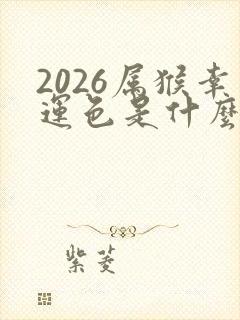 2026属猴幸
運色是什麼
紫菱